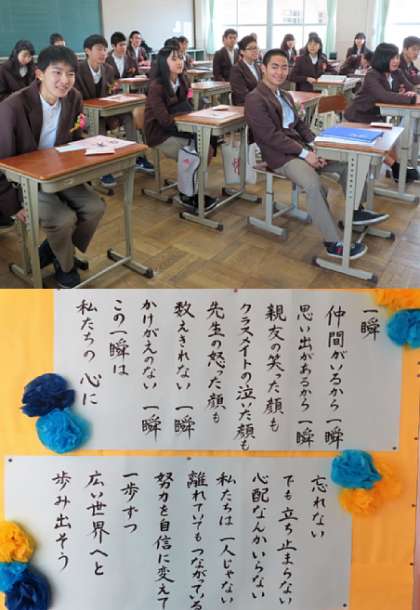 一瞬
仲間がいるから 一瞬
思い出があるから 一瞬
親友の笑った顔も
クラスメイトの泣いた顔も
先生の怒った顔も
数えきれない 一瞬
かけがえのない 一瞬
この一瞬は
私たちの 心に
忘れない
でも 立ち止まらない
心配なんかいらない
私たちは 一人じゃない
離れていても つながっている
努力を自信に変えて
一歩ずつ
広い世界へと
歩み出そう